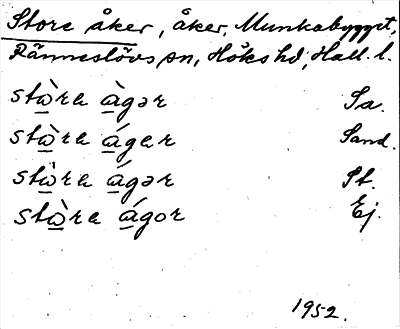 Store åker, åker, Munkabygget,
Ränneslövs sn, Höks hd, Hall. l.
stὼ̲ra ὼ̲gər Sa.
stὼ̲ra ώ̲gar Sand.
stὼ̲ra ώ̲gər St.
stὼ̲ra ώ̲gor Ej.
1952.